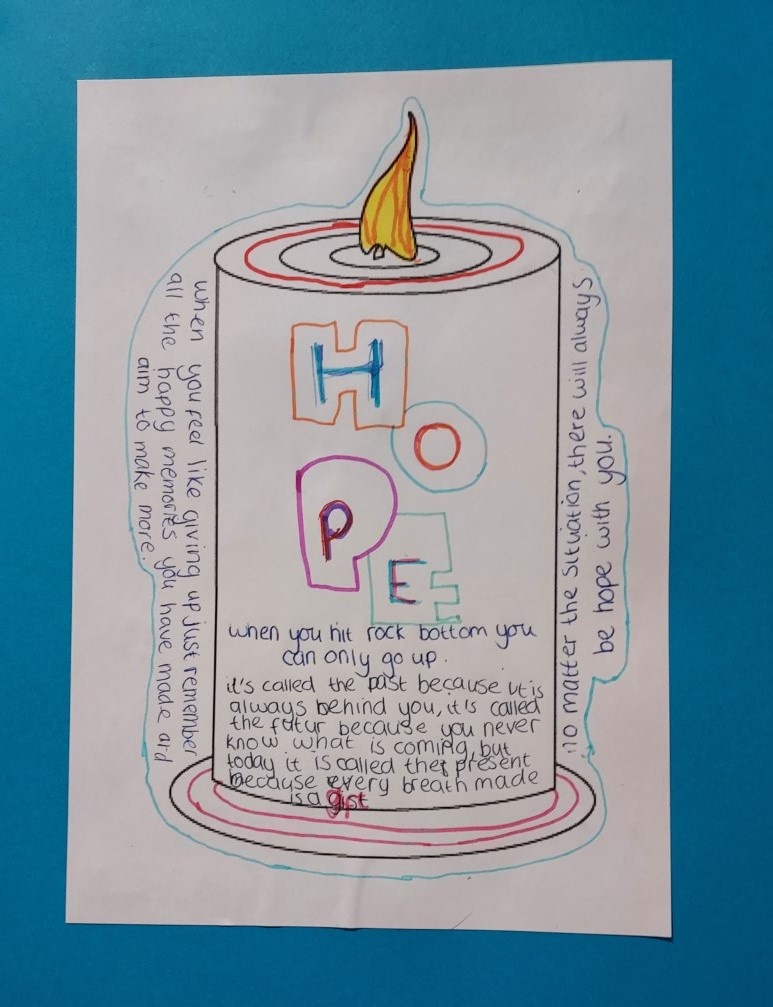 H
O
P
E
when you hit rock bottom you
can only go up.
it's called the past because it is
always behind you, it is called
the futur because you never
know what is coming, but
today it is called the present
because every breath made
is a gist
when you feel like giving up just remember
all the happy memories you have made and
aim to make more.
no matter the situation, there will always
be hope with you.